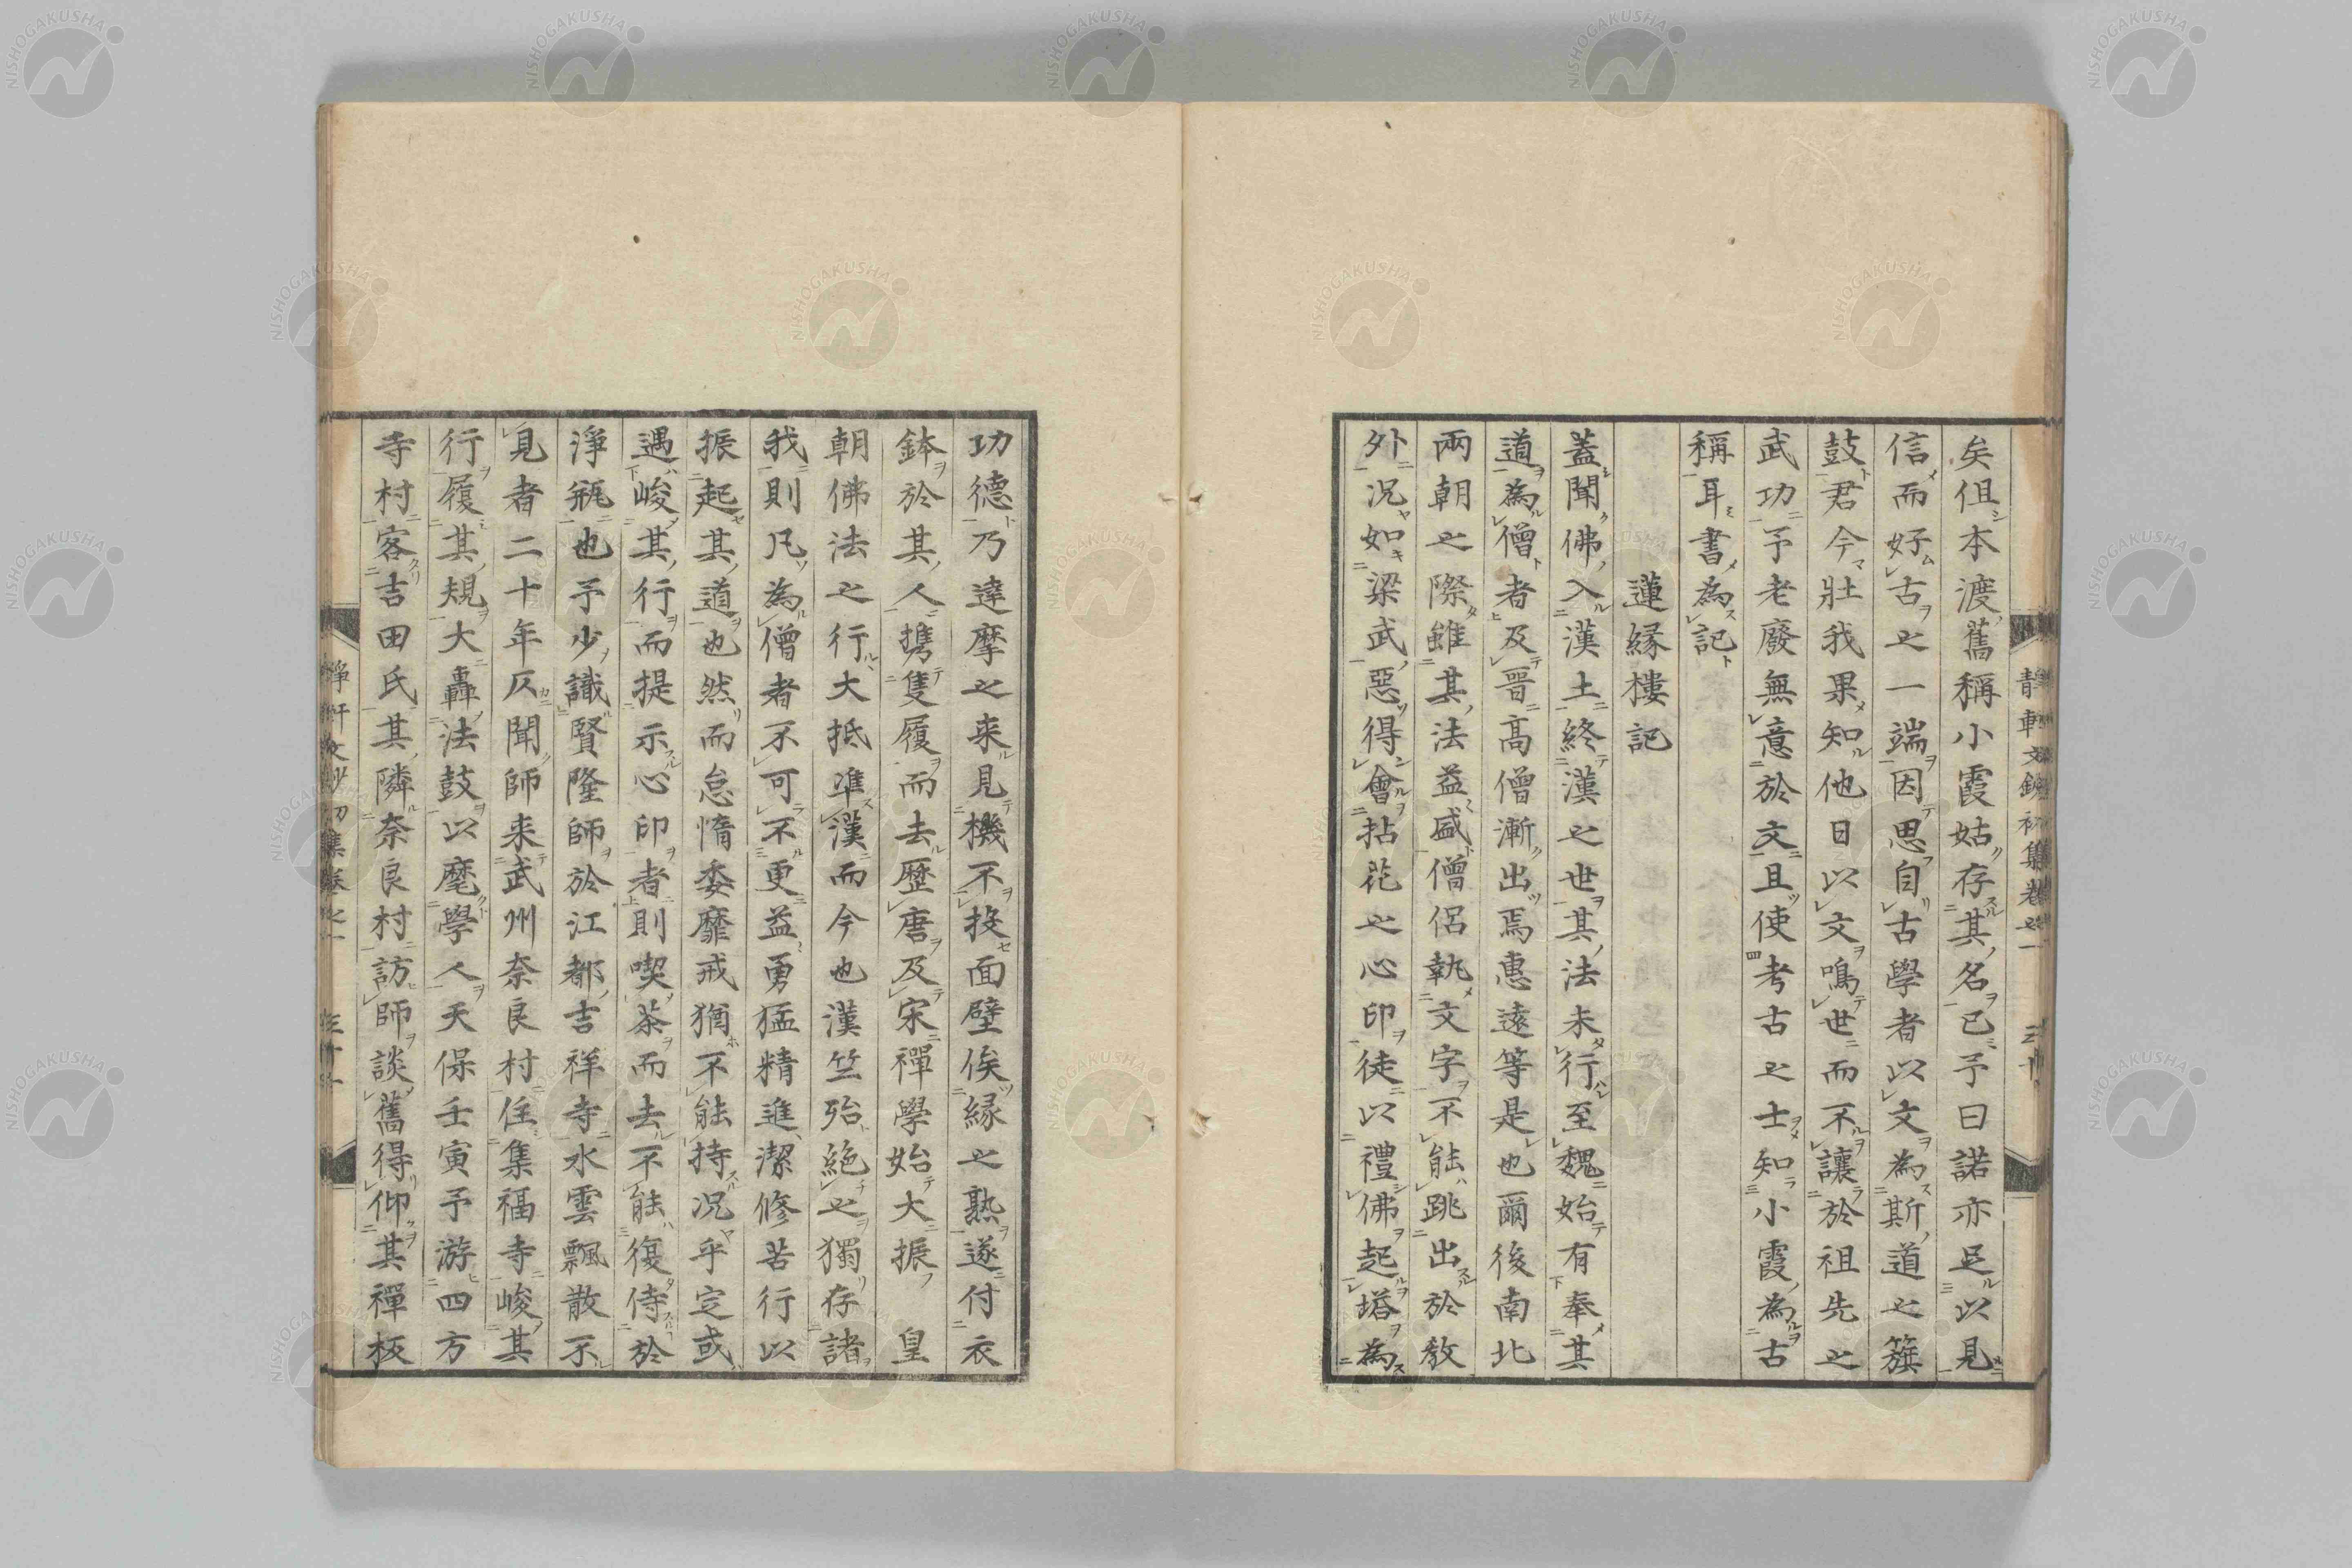 矣但本渡舊稱小霞姑存其名已予曰諾亦足以見
信而好古之一端因思自古學者以文為斯道之簱
鼓君今壯我果知他日以文鳴世而不讓於祖先之
武功予老廢無意於文且使考古之士知小霞為古
稱耳書為記
蓮緣樓記
蓋聞佛入漢土終漢之世其法未行至魏始有奉其
道為僧者及晉高僧漸出焉惠遠等是也爾後南北
兩朝之際雖其法益盛僧侶執文字不能跳出於敎
外況如梁武惡得會拈花之心印徒以禮佛起塔為
功德乃達摩之来見機不投面壁俟緣之熟遂付衣
鉢於其人携隻履而去歷唐及宋禪學始大振 皇
朝佛法之行大抵準漢而今也漢竺殆絕之獨存諸
我則凡為僧者不可不更益勇猛精進潔修苦行以
振起其道也然而怠惰委靡戒猶不能持況乎定或
遇峻其行而提示心印者則喫茶而去不能復侍於
淨瓶也予少識賢隆師於江都吉祥寺水雲飄散不
見者二十年仄聞師来武州奈良村住集福寺峻其
行履其規大轟法鼓以麾學人天保壬寅予游四方
寺村客吉田氏其隣奈良村訪師談舊得仰其禪板